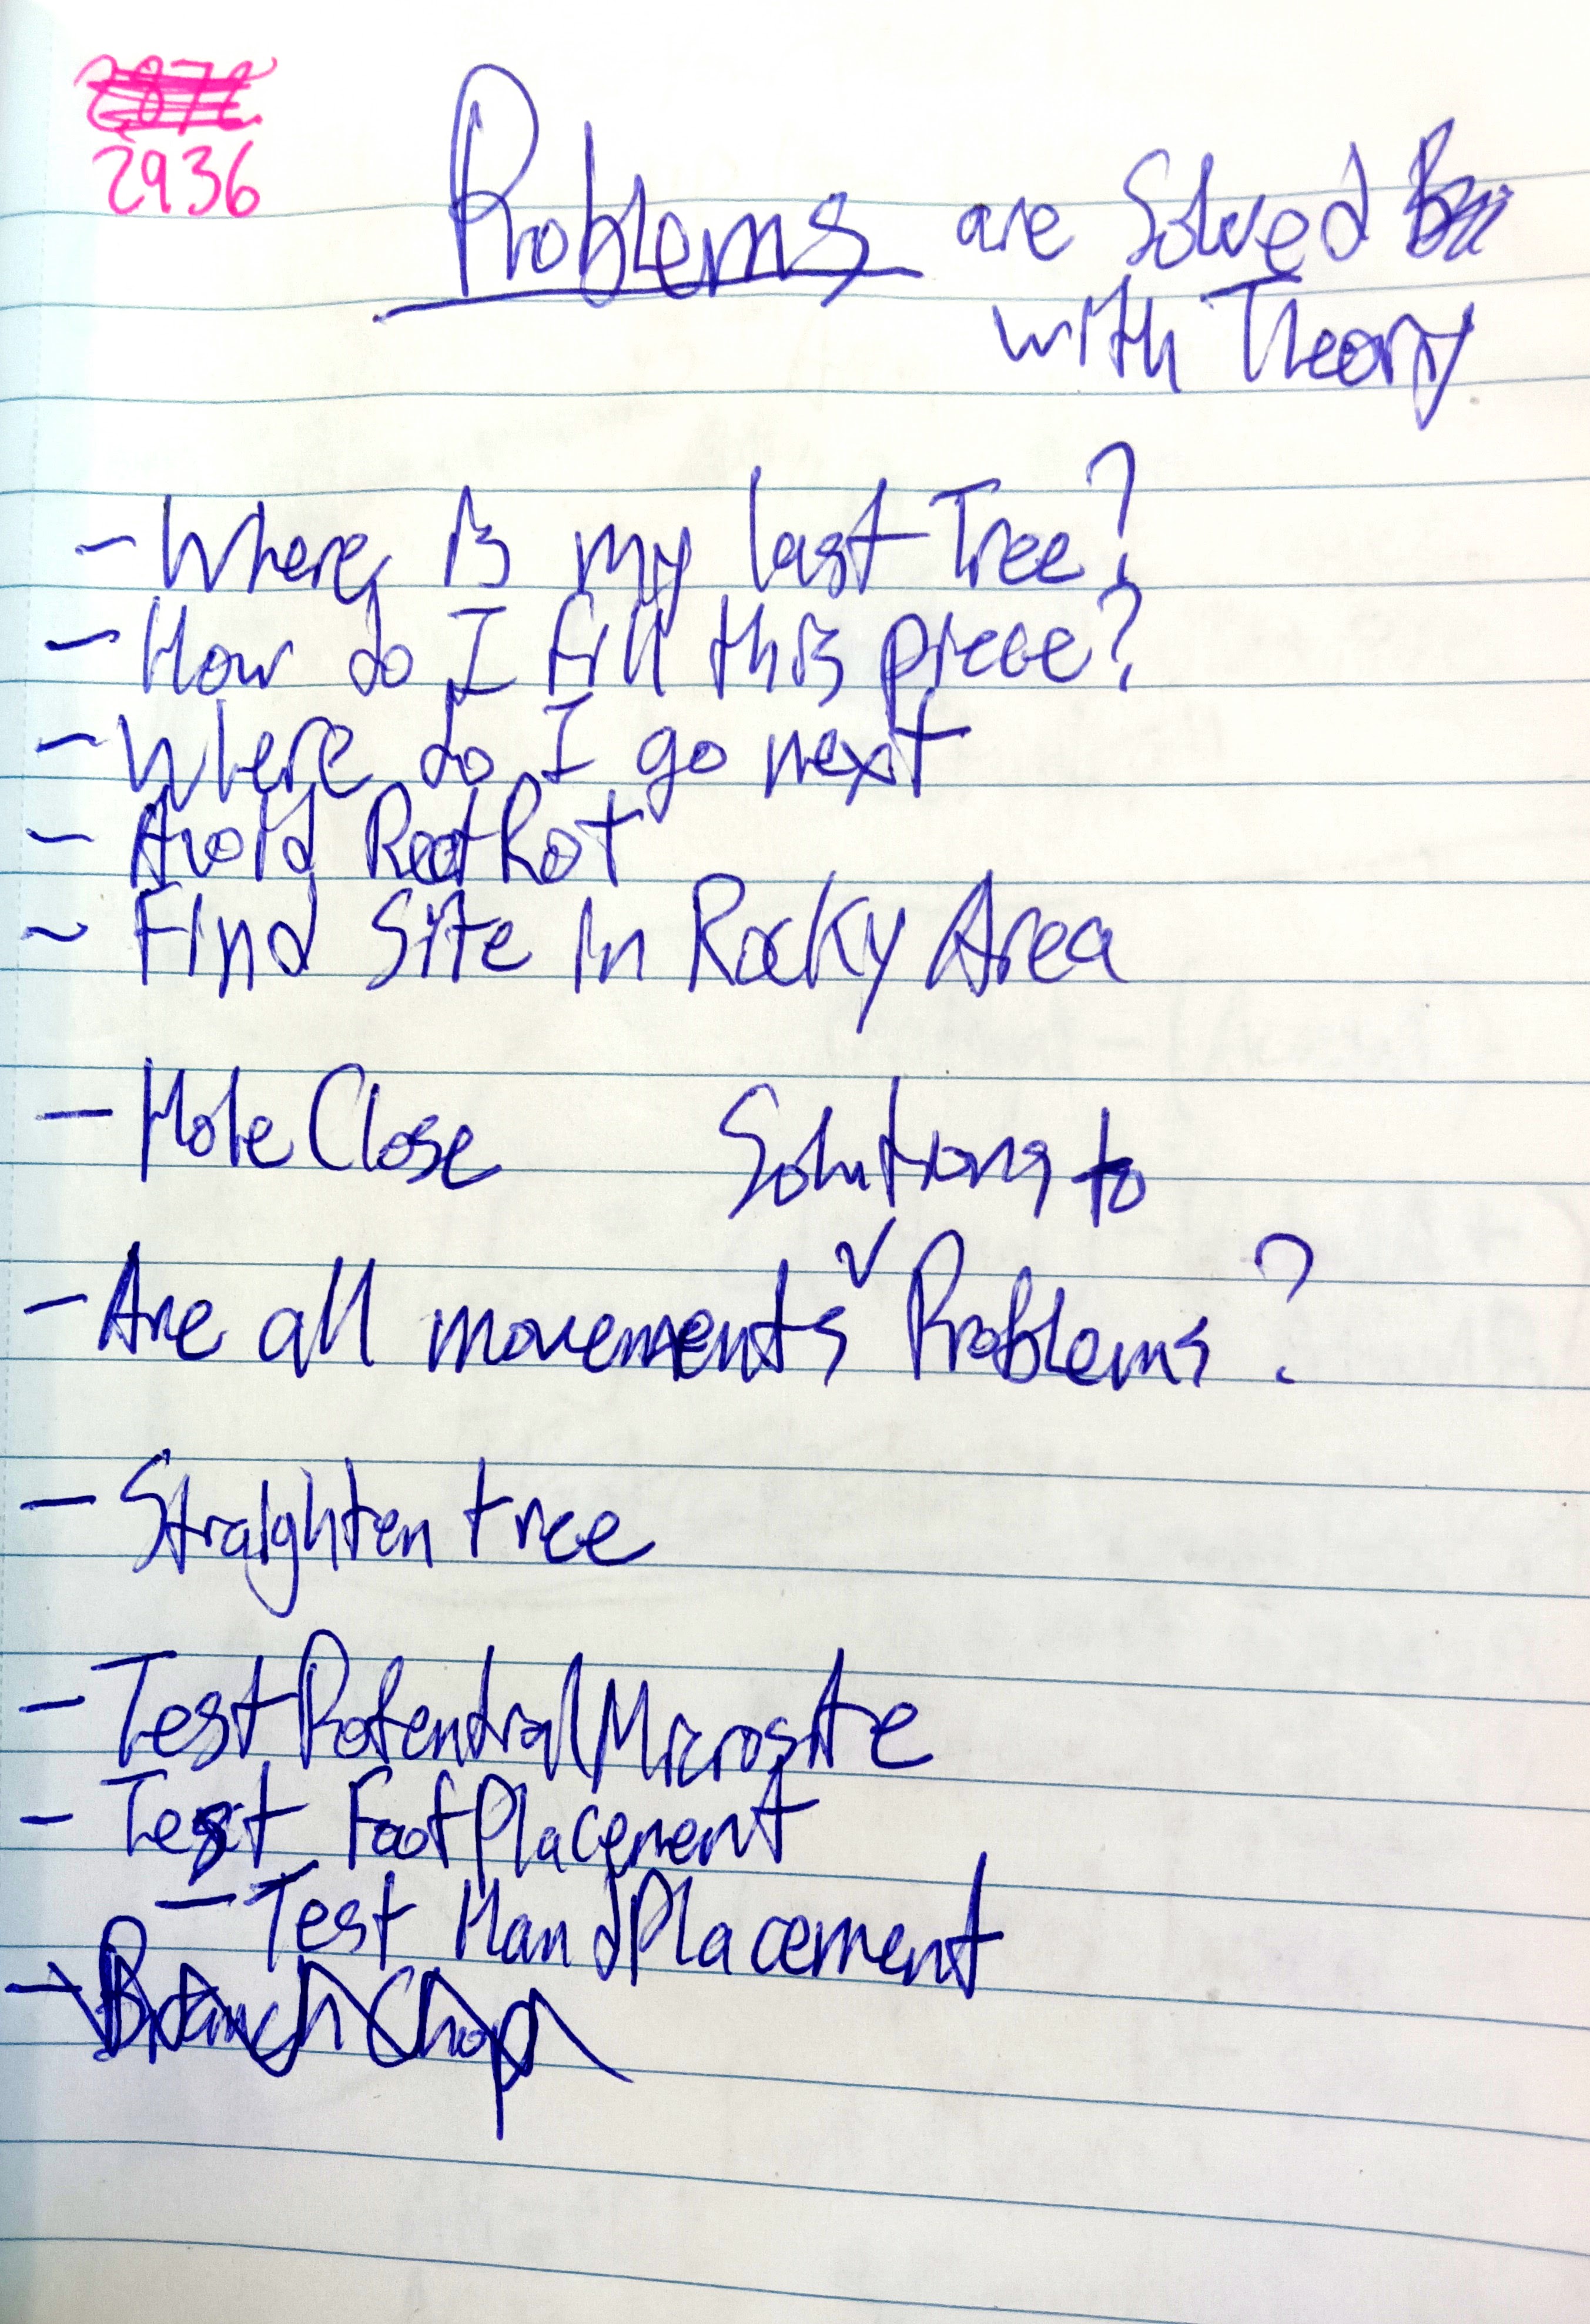 2936
Problems are Solved
with Theory
- Where is my last Tree?
- How do I fill this piece?
- Where do I go next
- Avoid Red Rot
- Find Site in Rocky Area
- Hole Close
Solutions to
- Are all movements ✓ Problems?
- Straighten tree
- Test Potential Microsite
- Test Foot Placement
- Test Hand Placement
- Branch Chop